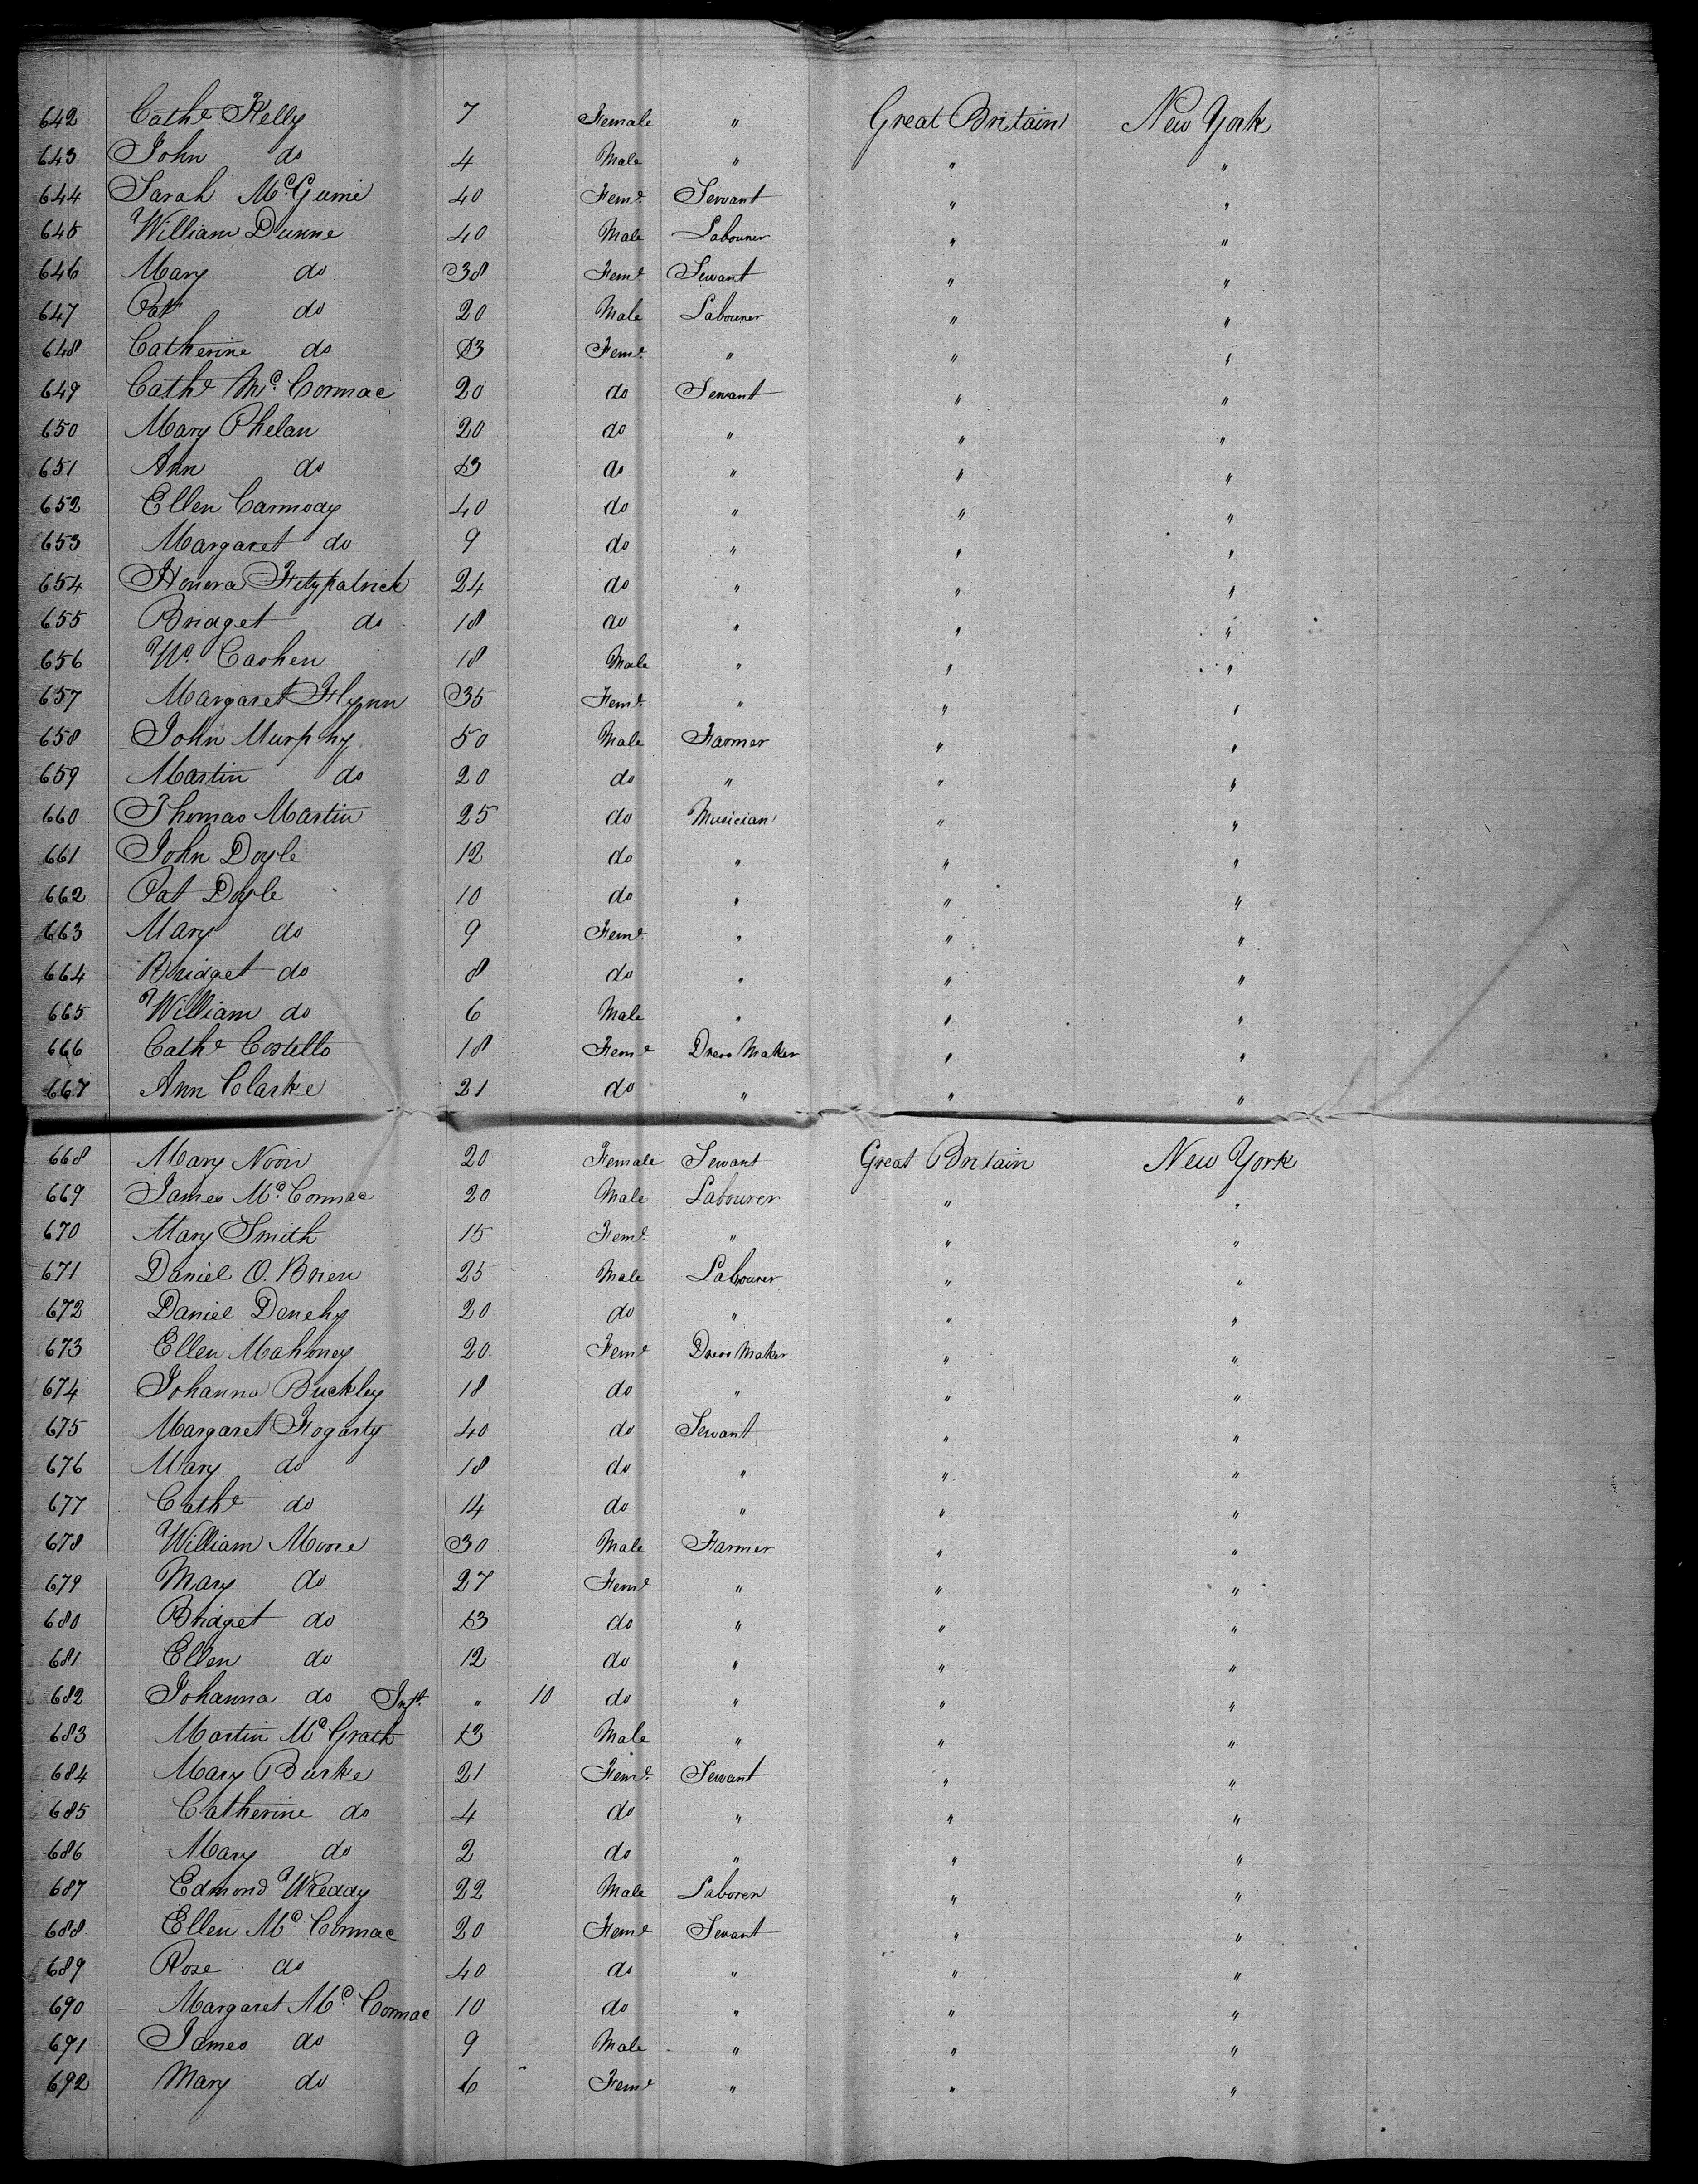 642 Cathe Kelly 7 Female " Great Britain New York
643 John do 4 Male " " "
644 Sarah McGuine 40 Feme Servant " "
645 William Dunne 40 Male Labourer " "
646 Mary do 38 Feme Servant " "
647 Pat do 20 Male Labourer " "
648 Catherine do 13 Feme " " "
649 Cathe McCormac 20 do Servant " "
650 Mary Phelan 20 do " " "
651 Ann do 13 do " " "
652 Ellen Carmody 40 do " " "
653 Margaret do 9 do " " "
654 Honora Fitzpatrick 24 do " " "
655 Bridget do 18 do " " "
656 Wm Cashen 18 Male " " "
657 Margaret Flynn 35 Feme " " "
658 John Murphy 50 Male Farmer " "
659 Martin do 20 do " " "
660 Thomas Martin 25 do Musician " "
661 John Doyle 12 do " " "
662 Pat Doyle 10 do " " "
663 Mary do 9 Feme " " "
664 Bridget do 8 do " " "
665 William do 6 Male " " "
666 Cathe Costello 18 Feme Dress Maker " "
667 Ann Clarke 21 do " " "
668 Mary Noon 20 Female Servant Great Britain New York
669 James McCormac 20 Male Labourer " "
670 Mary Smith 15 Feme " " "
671 Daniel O. Brien 25 Male Labourer " "
672 Daniel Denehy 20 do " " "
673 Ellen Mahoney 20 Feme Dress Maker " "
674 Johanna Buckley 18 do " " "
675 Margaret Fogarty 40 do Servant " "
676 Mary do 18 do " " "
677 Cathe do 14 do " " "
678 William Moore 30 Male Farmer " "
679 Mary do 27 Feme " " "
680 Bridget do 13 do " " "
681 Ellen do 12 do " " "
682 Johanna do Inft. " 10 do " " "
683 Martin McGrath 13 Male " " "
684 Mary Burke 21 Feme Servant " "
685 Catherine do 4 do " " "
686 Mary do 2 do " " "
687 Edmond 22 Male Laborer " "
688 Ellen McCormac 20 Feme Servant " "
689 Rose do 40 do " " "
690 Margaret McCormac 10 do " " "
691 James do 9 Male " " "
692 Mary do 6 Feme " " "